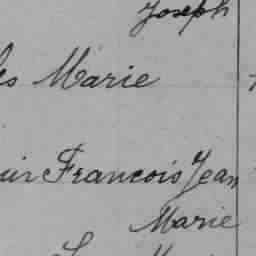 Joseph
Marie
François Jean
Marie